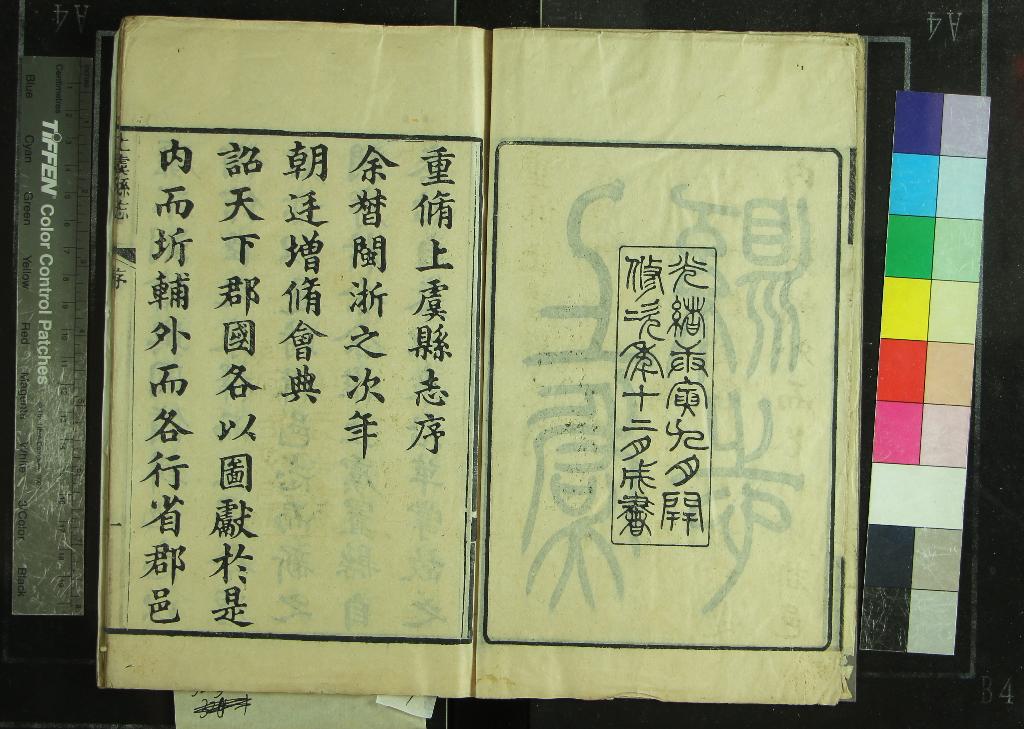 光緒庚寅九月開
修次年十二月成書
重脩上虞縣志序
余督閩浙之次年
朝廷增脩會典
詔天下郡國各以圖獻於是
內而圻輔外而各行省郡邑
上虞縣志
序
一
TIFFEN Color Control Patches
Centimetres
Blue Cyan Green Yellow Red Magenta White 3/Color Black
A4
A4
B4